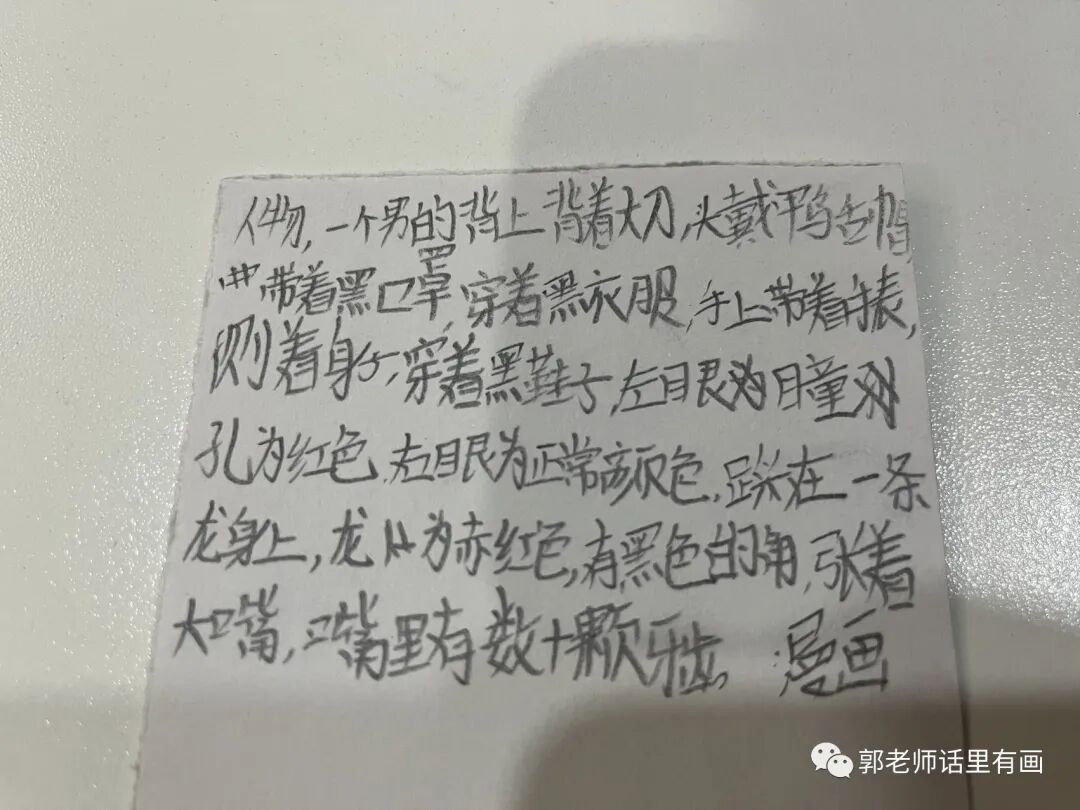 人物,一个男的背上背着大刀,头戴鸭舌帽
带着黑口罩,穿着黑衣服,手上带着手表,
侧着身子,穿着黑鞋子,左眼为瞳
孔为红色,右眼为正常颜色,踩在一条
龙身上,龙 为赤红色,有黑色的角,张着
大口嘴,口嘴里有数十颗牙齿 漫画
郭老师话里有画